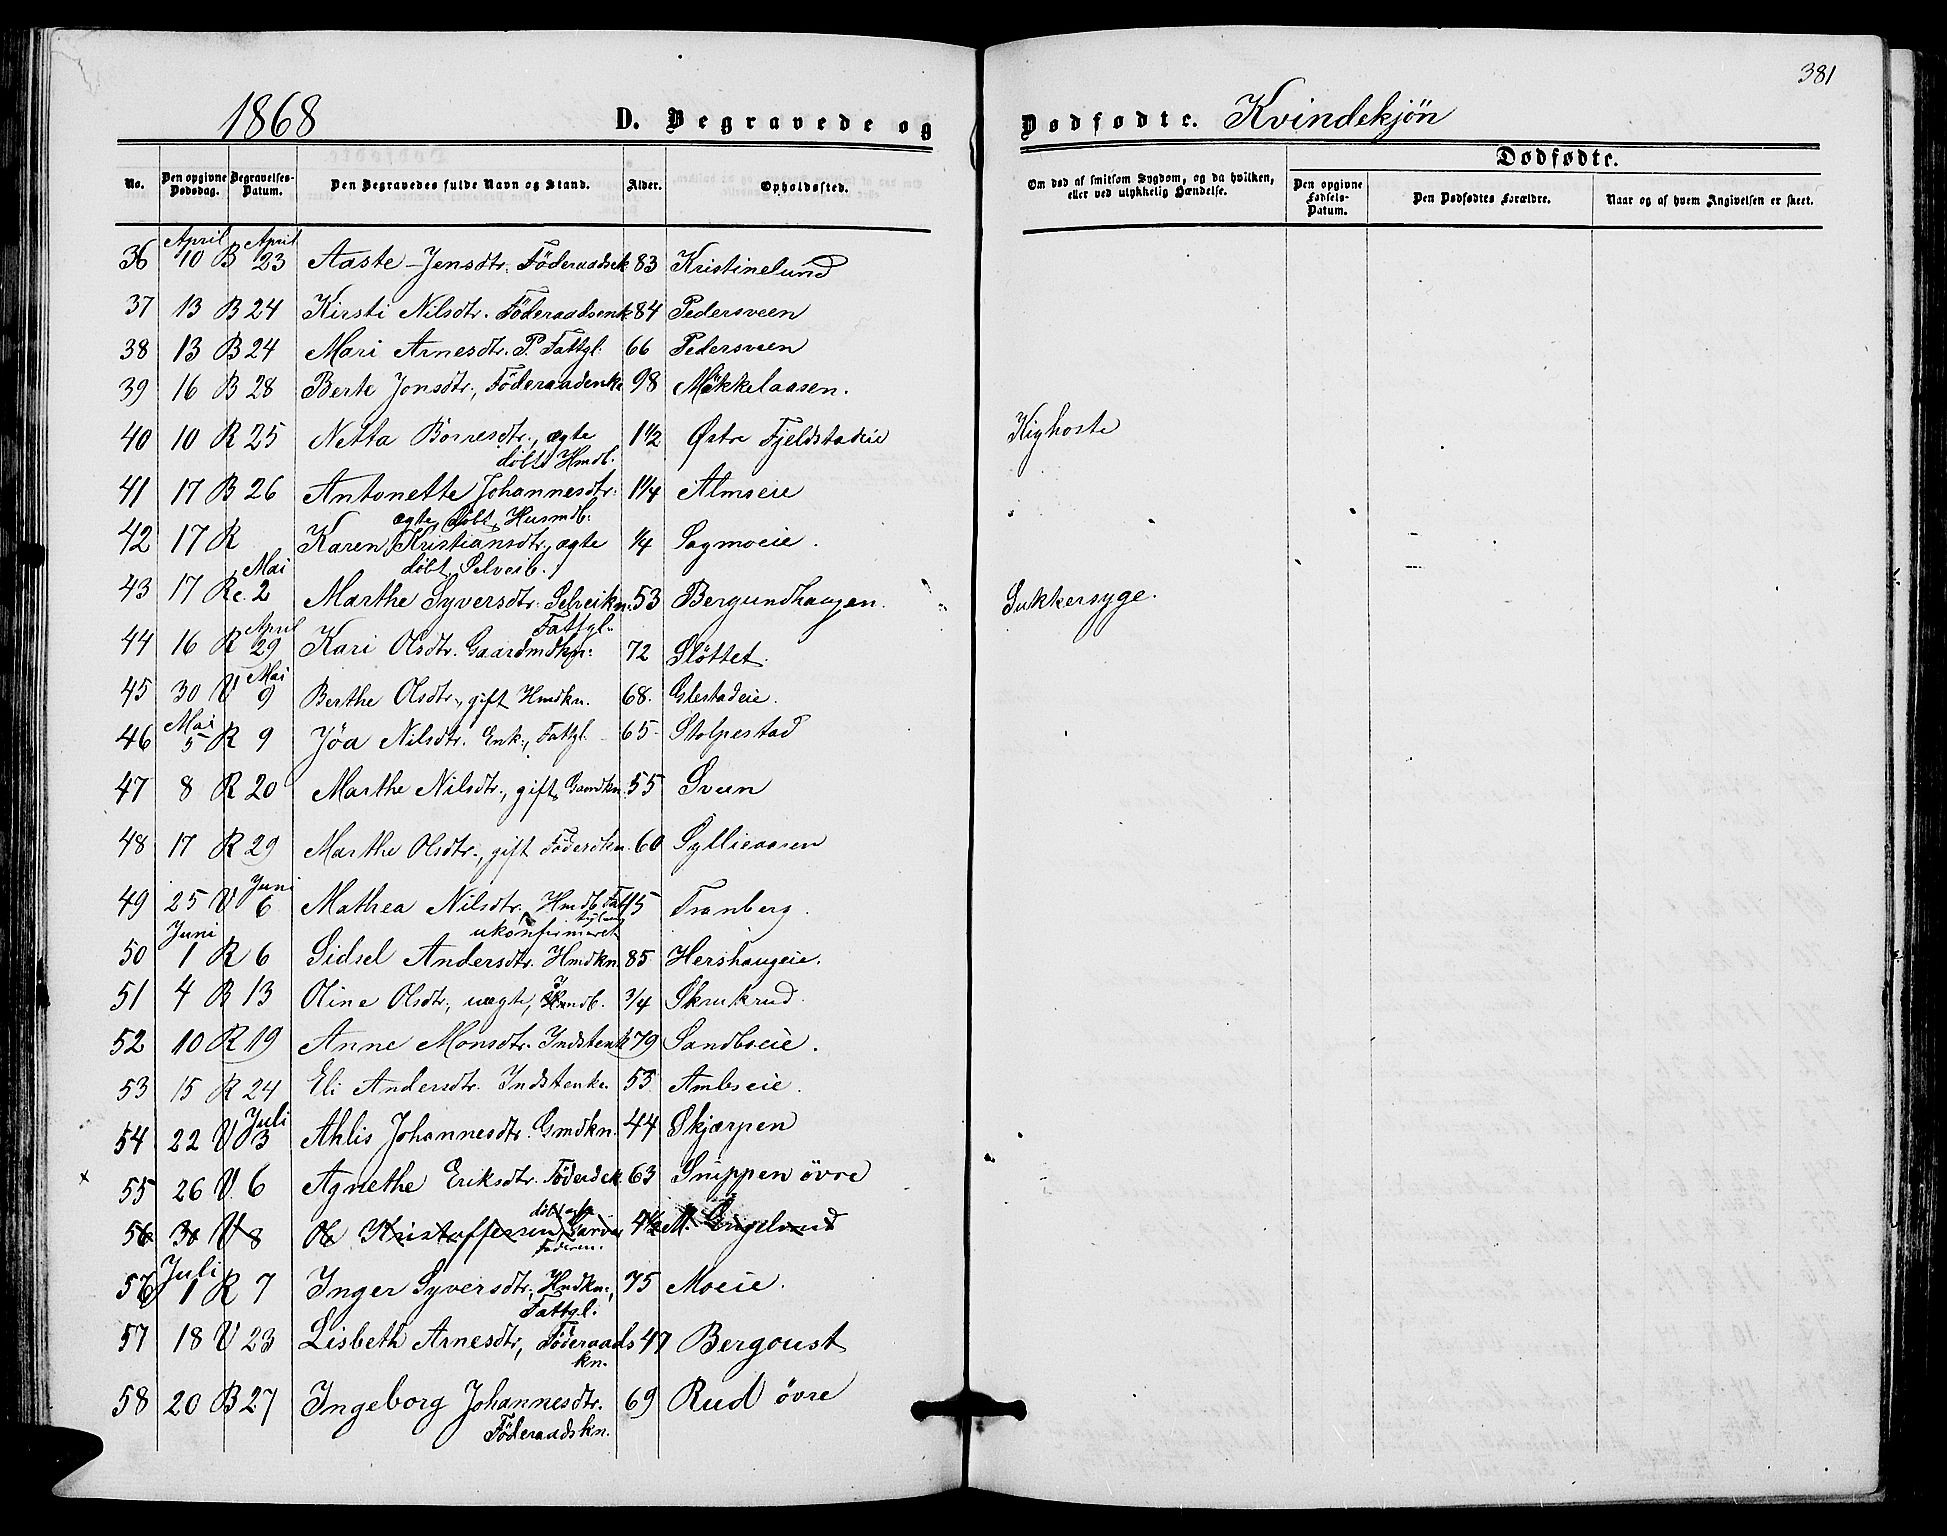 381
1868 D. Begravede og Dødfødte. Kvindekjön
Dødfødte.
No. Den opgivne Dødsdag. Begravelses-Datum. Den Begravedes fulde Navn og Stand. Alder. Opholdssted. Om død af smitsom Sygdom, og da hvilken, eller ved ulykkelig Hændelse. Den opgivne Fødsels-Datum. Den Dødfødtes Forældre. Naar og af hvem Angivelsen er skeet.
April April
36 10 B 23 Aaste Jensdtr. Föderaadsek 83 Kristinelund
37 13 B 24 Kirsti Nilsdtr. Föderaadsenk 84 Pedersveen
38 13 B 24 Mari Arnesdtr. P. Fattgl. 66 Pedersveen
39 16 B 28 Berte Jonsdtr., Föderaadenke 98 Mökkelaasen.
40 10 R 25 Netta Börresdtr., ægte 1 1/2 Østre Fjeldstadeie Kighoste
döbt Hmdb.
41 17 B 26 Antonette Johannesdtr. 1 1/4 Almseie
ægte, döbt, Husmdb.
42 17 R Karen Kristiansdtr., ægte 1/4 Sagmoeie.
Mai döbt, Selveib.
43 17 Re. 2 Marthe Syversdtr. Selveikn. 53 Bergundhaugen. Sukkersyge.
April Fattgl.
44 16 R 29 Kari Olsdtr. Gaardmdkn. 72 Slöttet.
Mai
45 30 V 9 Berthe Olsdtr., gift Hmdkn. 68. Glestadeie.
Mai
46 5 R 9 Jöa Nilsdtr. Enk., Fattgl. 65 Stolpestad
47 8 R 20 Marthe Nilsdtr., gift Gamdkn. 55 Sveen
48 17 R 29 Marthe Olsdtr., gift Föderdkn. 60 Syllieaasen
Juni
49 25 V 6 Mathea Nilsdtr., Hmdb. Fat 15 Tranberg.
Juni ukonfirmeret
50 1 R 6 Sidsel Andersdtr. Hmdkn. 85 Hershaugeie.
51 4 B 13 Oline Olsdtr., uægte, Hmdb. 3/4 Skrukrud.
52 10 R 19 Anne Monsdtr. Indstenk 79 Sandbseie.
53 15 R 24 Eli Andersdtr. Indstenke. 53 Ambseie.
Juli
54 22 V 3 Ahlis Johannesdtr. Gmdkn. 44 Skjærpen
x 55 26 V. 6 Agnethe Eriksdtr. Föderdek 63 Snippen övre
56 30 V 8 Ole Kristoffersen, Garver 4 1/2 M. Engelund
Juli
56 1 R 7 Inger Syversdtr., Hmdkn., 75 Moeie.
Fattgl.
57 18 V 23 Lisbeth Arnesdtr, Föderaads 47 Bergoust
kn.
58 20 B 27 Ingeborg Johannesdtr. 69 Rud övre
Föderaadskn.